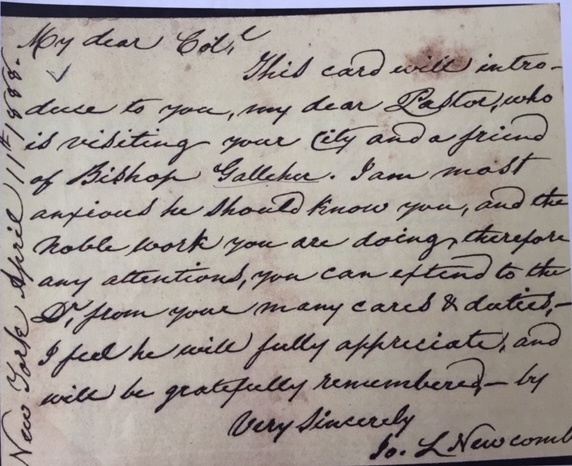 My dear Col.l
This card will intro-
duce to you, my dear Pastor, who
is visiting your City and a friend
of Bishop Galleher. I am most
anxious he should know you, and the
noble work you are doing, therefore
any attentions, you can extend to the
Dr, from your many cares & duties,—
I feel he will fully appreciate, and
will be gratefully remembered,— by
Very Sincerely
Jo. L Newcomb
New York April 11th/888.